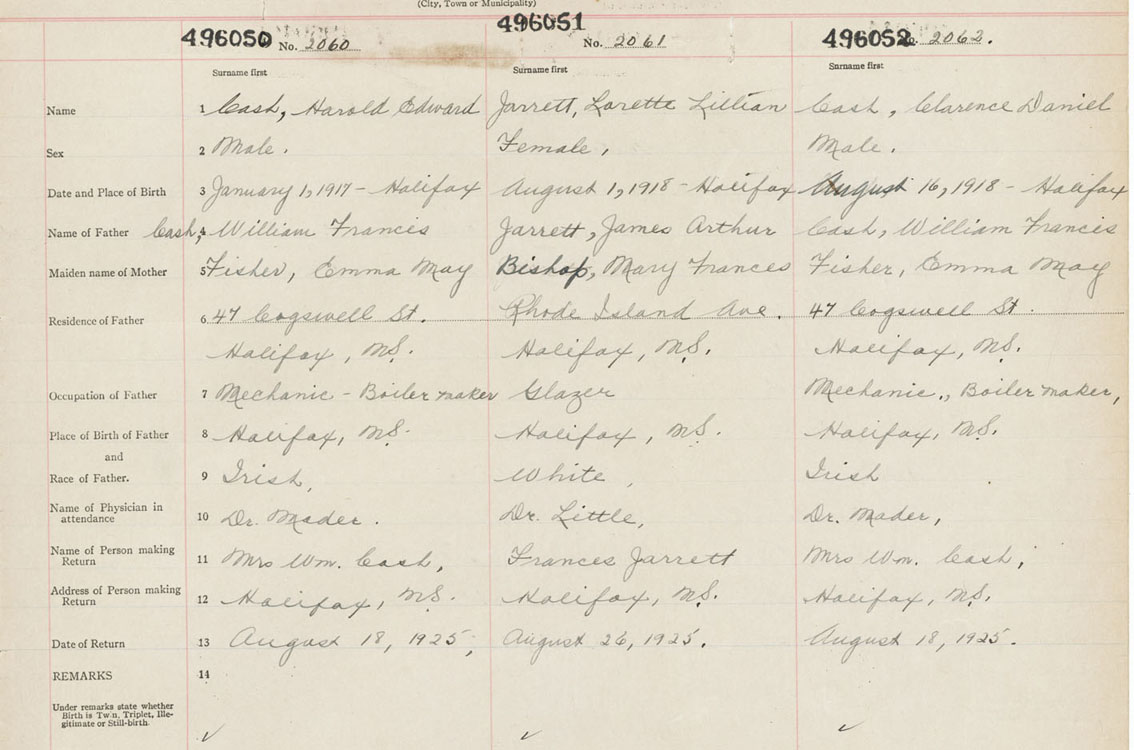 (City, Town or Municipality)
496050 No. 2060 496051 No. 2061 496052 2062.
Surname first Surname first Surname first
Name 1 Cash, Harold Edward Jarrett, Lorette Lillian Cash, Clarence Daniel
Sex 2 Male. Female, Male.
Date and Place of Birth 3 January 1, 1917 - Halifax August 1, 1918 - Halifax August 16, 1918 - Halifax
Name of Father 4 Cash, William Francis Jarrett, James Arthur Cash, William Francis
Maiden name of Mother 5 Fisher, Emma May Bishop, Mary Frances Fisher, Emma May
Residence of Father 6 47 Cogswell St. Rhode Island Ave. 47 Cogswell St.
Halifax, N.S. Halifax, N.S. Halifax, N.S.
Occupation of Father 7 Mechanic - Boiler maker Glazer Mechanic., Boiler maker,
Place of Birth of Father 8 Halifax, N.S. Halifax, N.S. Halifax, N.S.
and
Race of Father. 9 Irish, White, Irish
Name of Physician in
attendance 10 Dr. Mader. Dr. Little, Dr. Mader,
Name of Person making
Return 11 Mrs Wm. Cash, Frances Jarrett Mrs Wm. Cash,
Address of Person making
Return 12 Halifax, N.S. Halifax, N.S. Halifax, N.S.
Date of Return 13 August 18, 1925, August 26, 1925. August 18, 1925.
REMARKS 14
Under remarks state whether
Birth is Twin, Triplet, Ille-
gitimate or Still-birth.